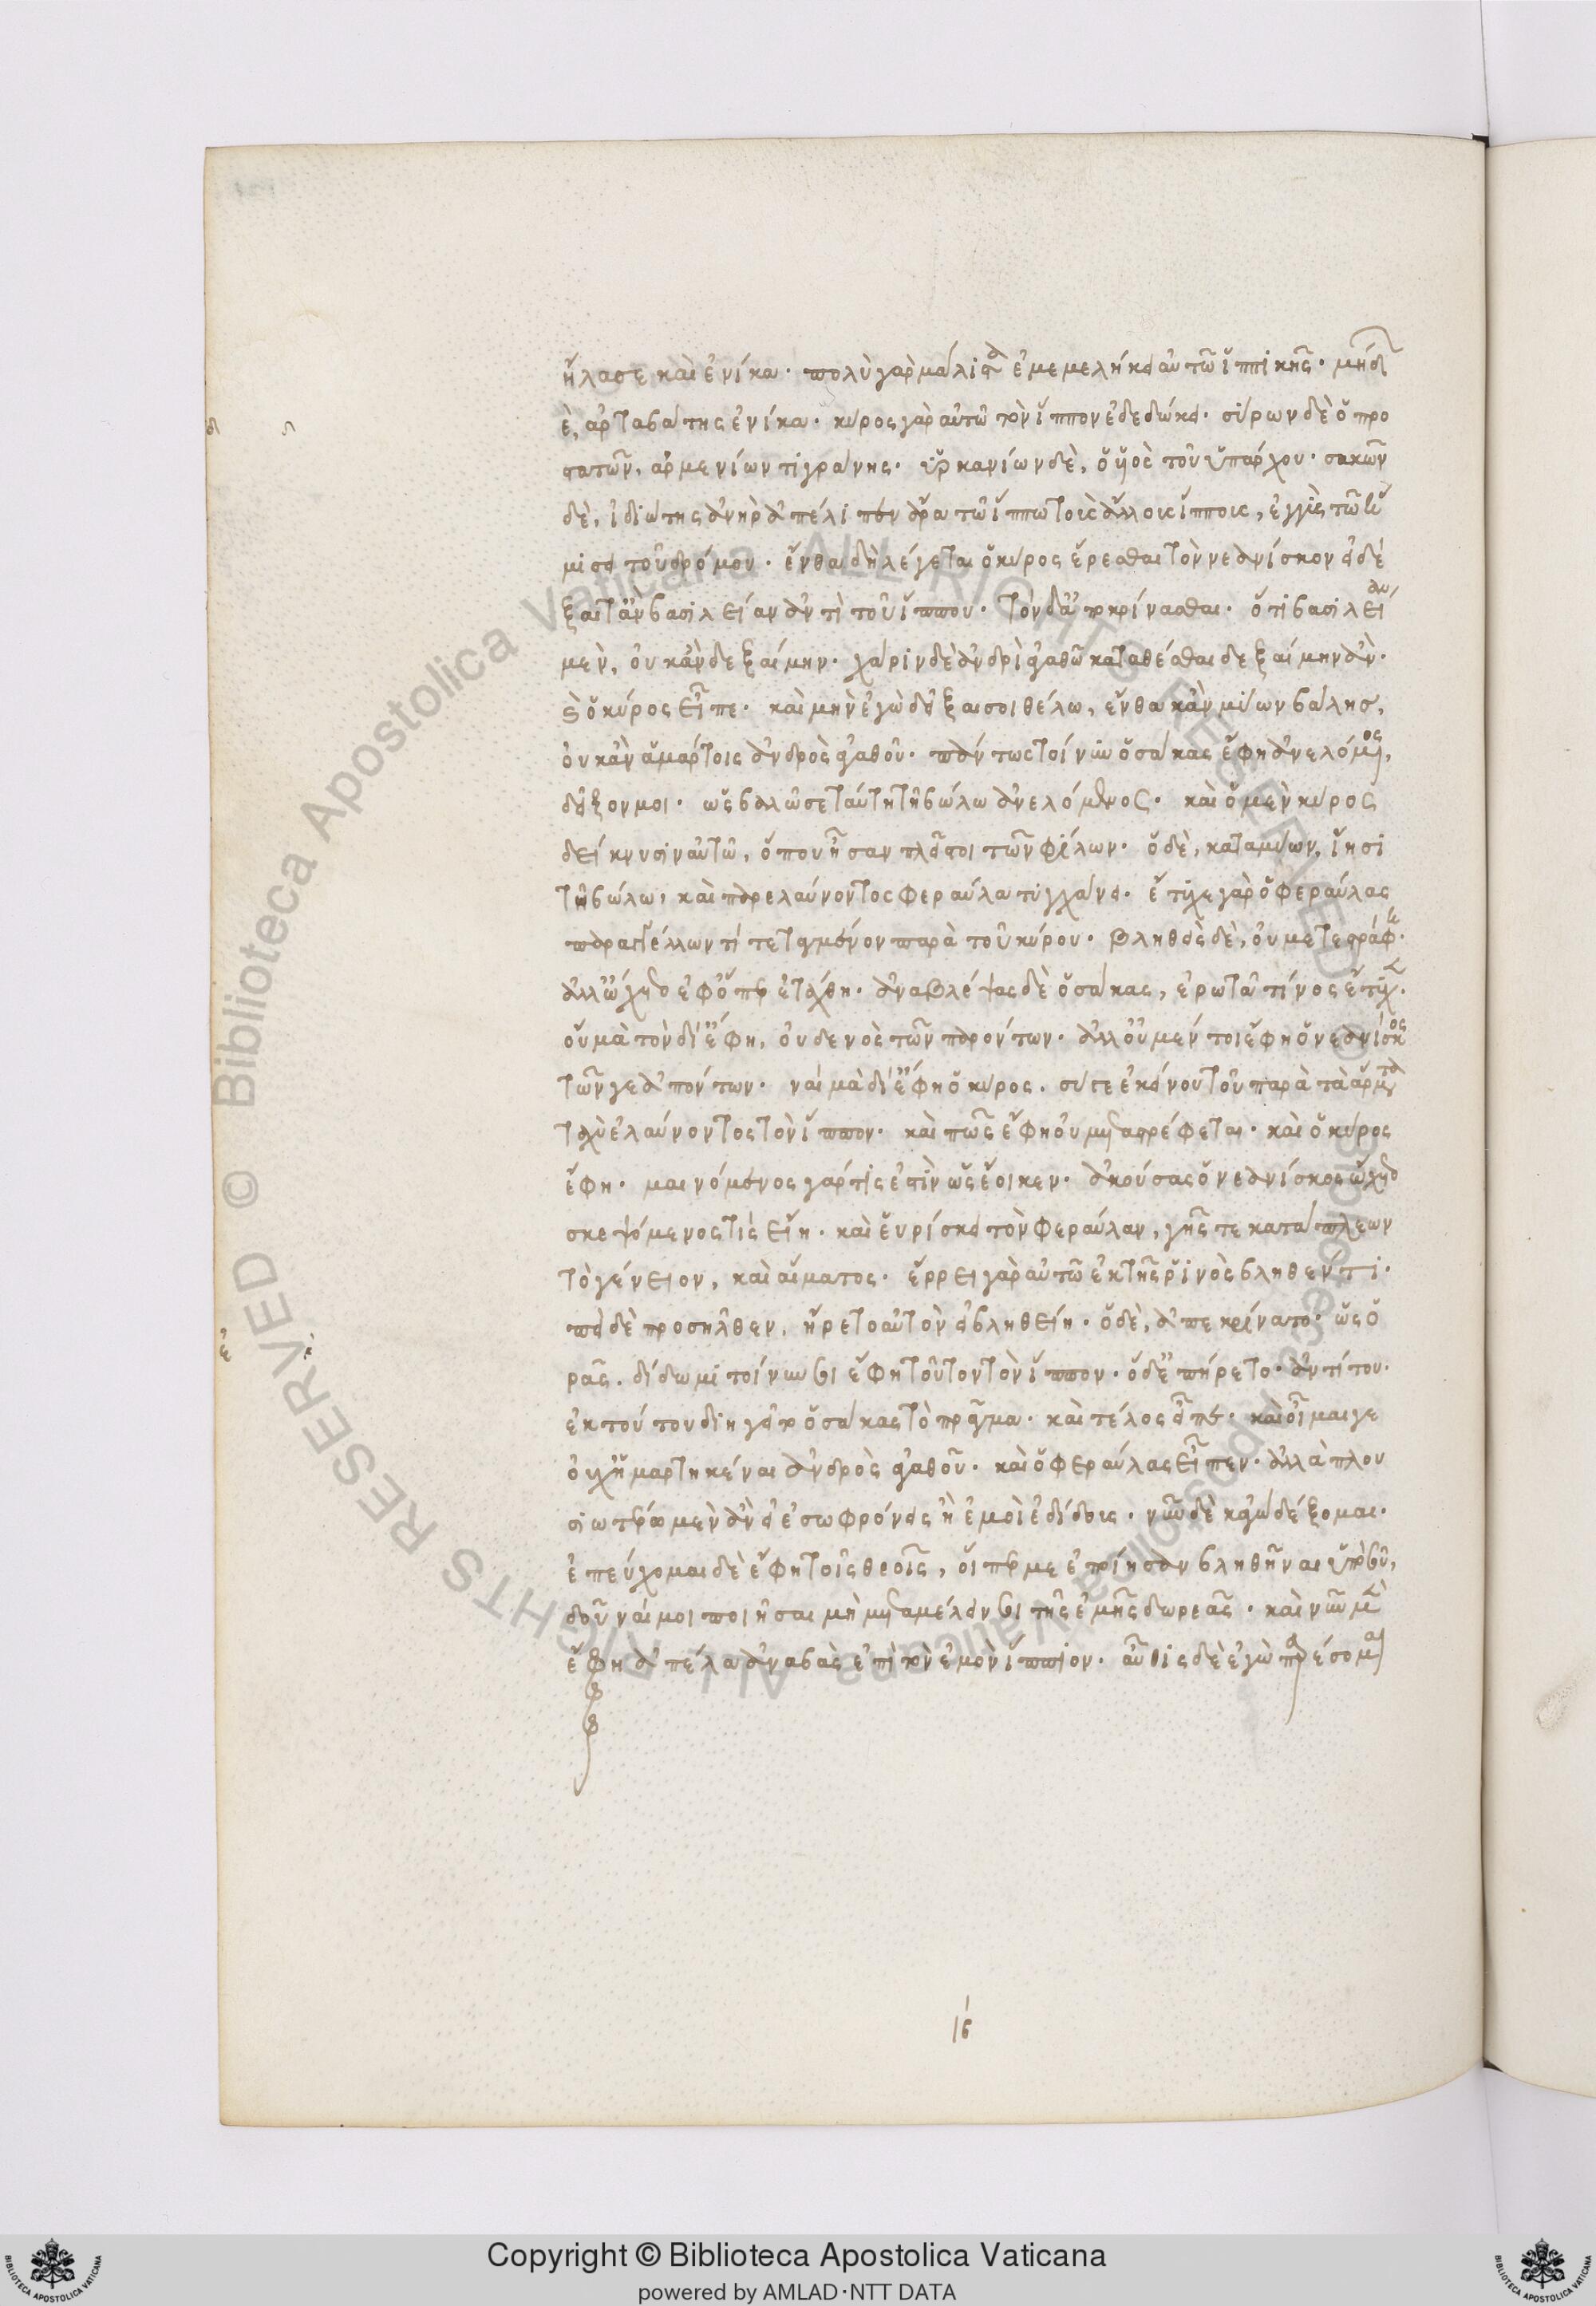 ἤλασε καὶ ἐνίκα· πολὺ γὰρ μάλιστα ἐμεμελήκει αὐτῶ ἱππικῆς· μήδων
δὲ, ἀρταβάτης ἐνίκα· κύρος γὰρ αὐτῶ τὸν ἵππον ἐδεδώκει· σύρων δὲ ὁ προ
στατῶν, ἀρμενίων τιγράνης· ὑρκανίων δὲ, ὁ υἱὸς τοῦ ἱππάρχου· σακῶν
δὲ, ἰδιώτης ἀνὴρ ἀπέλιπεν ἄρα τῶ ἵππω τοὺς ἄλλους ἵππους, ἐγγὺς τῶ ἡ
μίσει τοῦ δρόμου· ἔνθα δὴ λέγεται ὁ κύρος ἔρεσθαι τὸν νεανίσκον εἰ δέ
ξαιτ' ἂν βασιλείαν ἀντὶ τοῦ ἵππου· τὸν δ' ἀποκρίνασθαι· ὅτι βασιλείαν
μὲν, οὐκ ἂν δεξαίμην· χάριν δὲ ἀνδρὶ ἀγαθῶ καταθέσθαι δεξαίμην ἄν·
καὶ ὁ κύρος εἶπε· καὶ μὴν ἐγὼ δεῖξαι σοι θέλω, ἔνθα κἂν μύων βάλης,
οὐκ ἂν ἁμάρτοις ἀνδρὸς ἀγαθοῦ· πάντως τοίνυν ὁ σάκας ἔφη ἀνελόμενος,
δεῖξόν μοι· ὡς βαλῶ σε ταύτη τῆ βώλω ἀνελόμενος· καὶ ὁ μὲν κύρος
δείκνυσιν αὐτῶ, ὅπου ἦσαν πλεῖστοι τῶν φίλων· ὁ δὲ, καταμύων, ἵησι
τῆ βώλω, καὶ παρελαύνοντος φεραύλα τυγχάνει· ἔτυχε γὰρ ὁ φεραύλας
παραγγέλλων τί τεταγμένον παρὰ τοῦ κύρου· βληθεὶς δὲ, οὐ μετεστράφη·
ἀλλ' ὤχετο ἐφ' ὅπερ ἐτάχθη· ἀναβλέψας δὲ ὁ σάκας, ἐρωτᾶ τίνος ἔτυχεν·
οὐ μὰ τὸν δί' ἔφη, οὐδενὸς τῶν παρόντων· ἀλλ' οὐ μέν τοι ἔφη ὁ νεανίσκος
τῶν γε ἀπόντων· ναὶ μὰ δί' ἔφη ὁ κύρος, σύ γε ἐκείνου τοῦ παρὰ τὰ ἅρματα
ταχὺ ἐλαύνοντος τὸν ἵππον· καὶ πῶς ἔφη οὐ μεταστρέφεται· καὶ ὁ κύρος
ἔφη· μαινόμενος γάρ τίς ἐστὶν ὡς ἔοικεν· ἀκούσας ὁ νεανίσκος ὤχετο
σκεψόμενος τίς εἴη· καὶ εὑρίσκει τὸν φεραύλαν, γῆς τε κατάπλεων
τὸ γένειον, καὶ αἵματος· ἔρρει γὰρ αὐτῶ ἐκ τῆς ῥινὸς βληθέντι·
ἐπεὶ δὲ προσῆλθεν, ἤρετο αὐτὸν εἰ βληθείη· ὁ δὲ, ἀπεκρίνατο· ὡς ὁ
ρᾶς. δίδωμι τοίνυν σοι ἔφη τοῦτον τὸν ἵππον· ὁ δ' ἐπήρετο· ἀντὶ του·
ἐκ τούτου διηγεῖτο ὁ σάκας τὸ πρᾶγμα· καὶ τέλος εἶπεν· καὶ οἶμαί γε
οὐχ ἡμαρτηκέναι ἀνδρὸς ἀγαθοῦ· καὶ ὁ φεραύλας εἶπεν· ἀλλὰ πλου
σιωτέρω μὲν ἂν εἰ ἐσωφρόνεις ἢ ἐμοὶ ἐδίδους· νῦν δὲ κἀγὼ δέξομαι·
ἐπεύχομαι δὲ ἔφη τοῖς θεοῖς, οἵπερ με ἐποίησαν βληθῆναι ὑπὸ σοῦ,
δοῦναί μοι ποιῆσαι μὴ μεταμέλειν σοι τῆς ἐμῆς δωρεᾶς· καὶ νῦν μὲν
ἔφη ἀπέλα ἀναβὰς ἐπὶ τὸν ἐμὸν ἵππον· αὖθις δὲ ἐγὼ παρέσομαι
ιϛ
Biblioteca Apostolica Vaticana ALL RIGHTS RESERVED ©
Copyright © Biblioteca Apostolica Vaticana
powered by AMLAD·NTT DATA